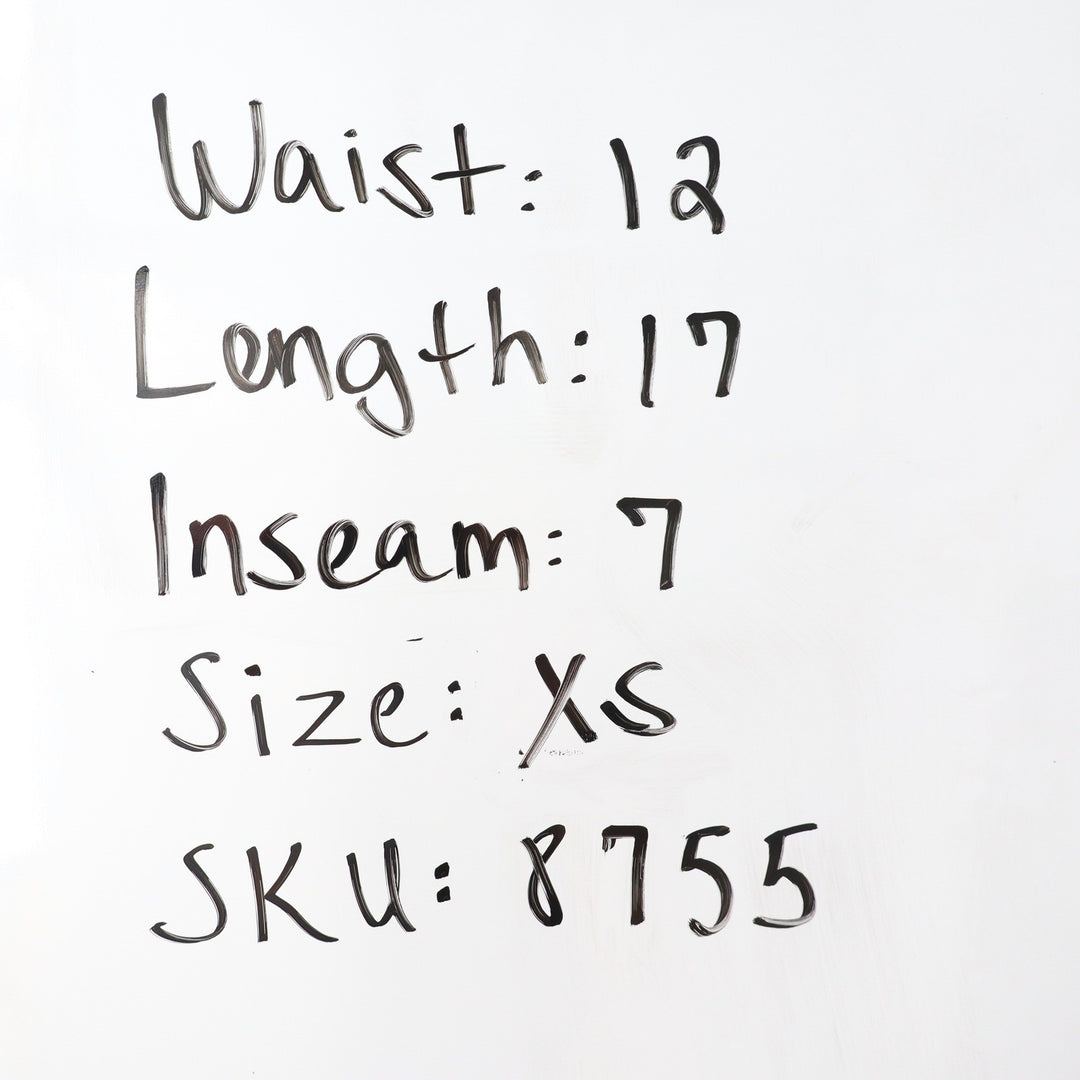 Waist: 12
Length: 17
Inseam: 7
Size: XS
SKU: 8755